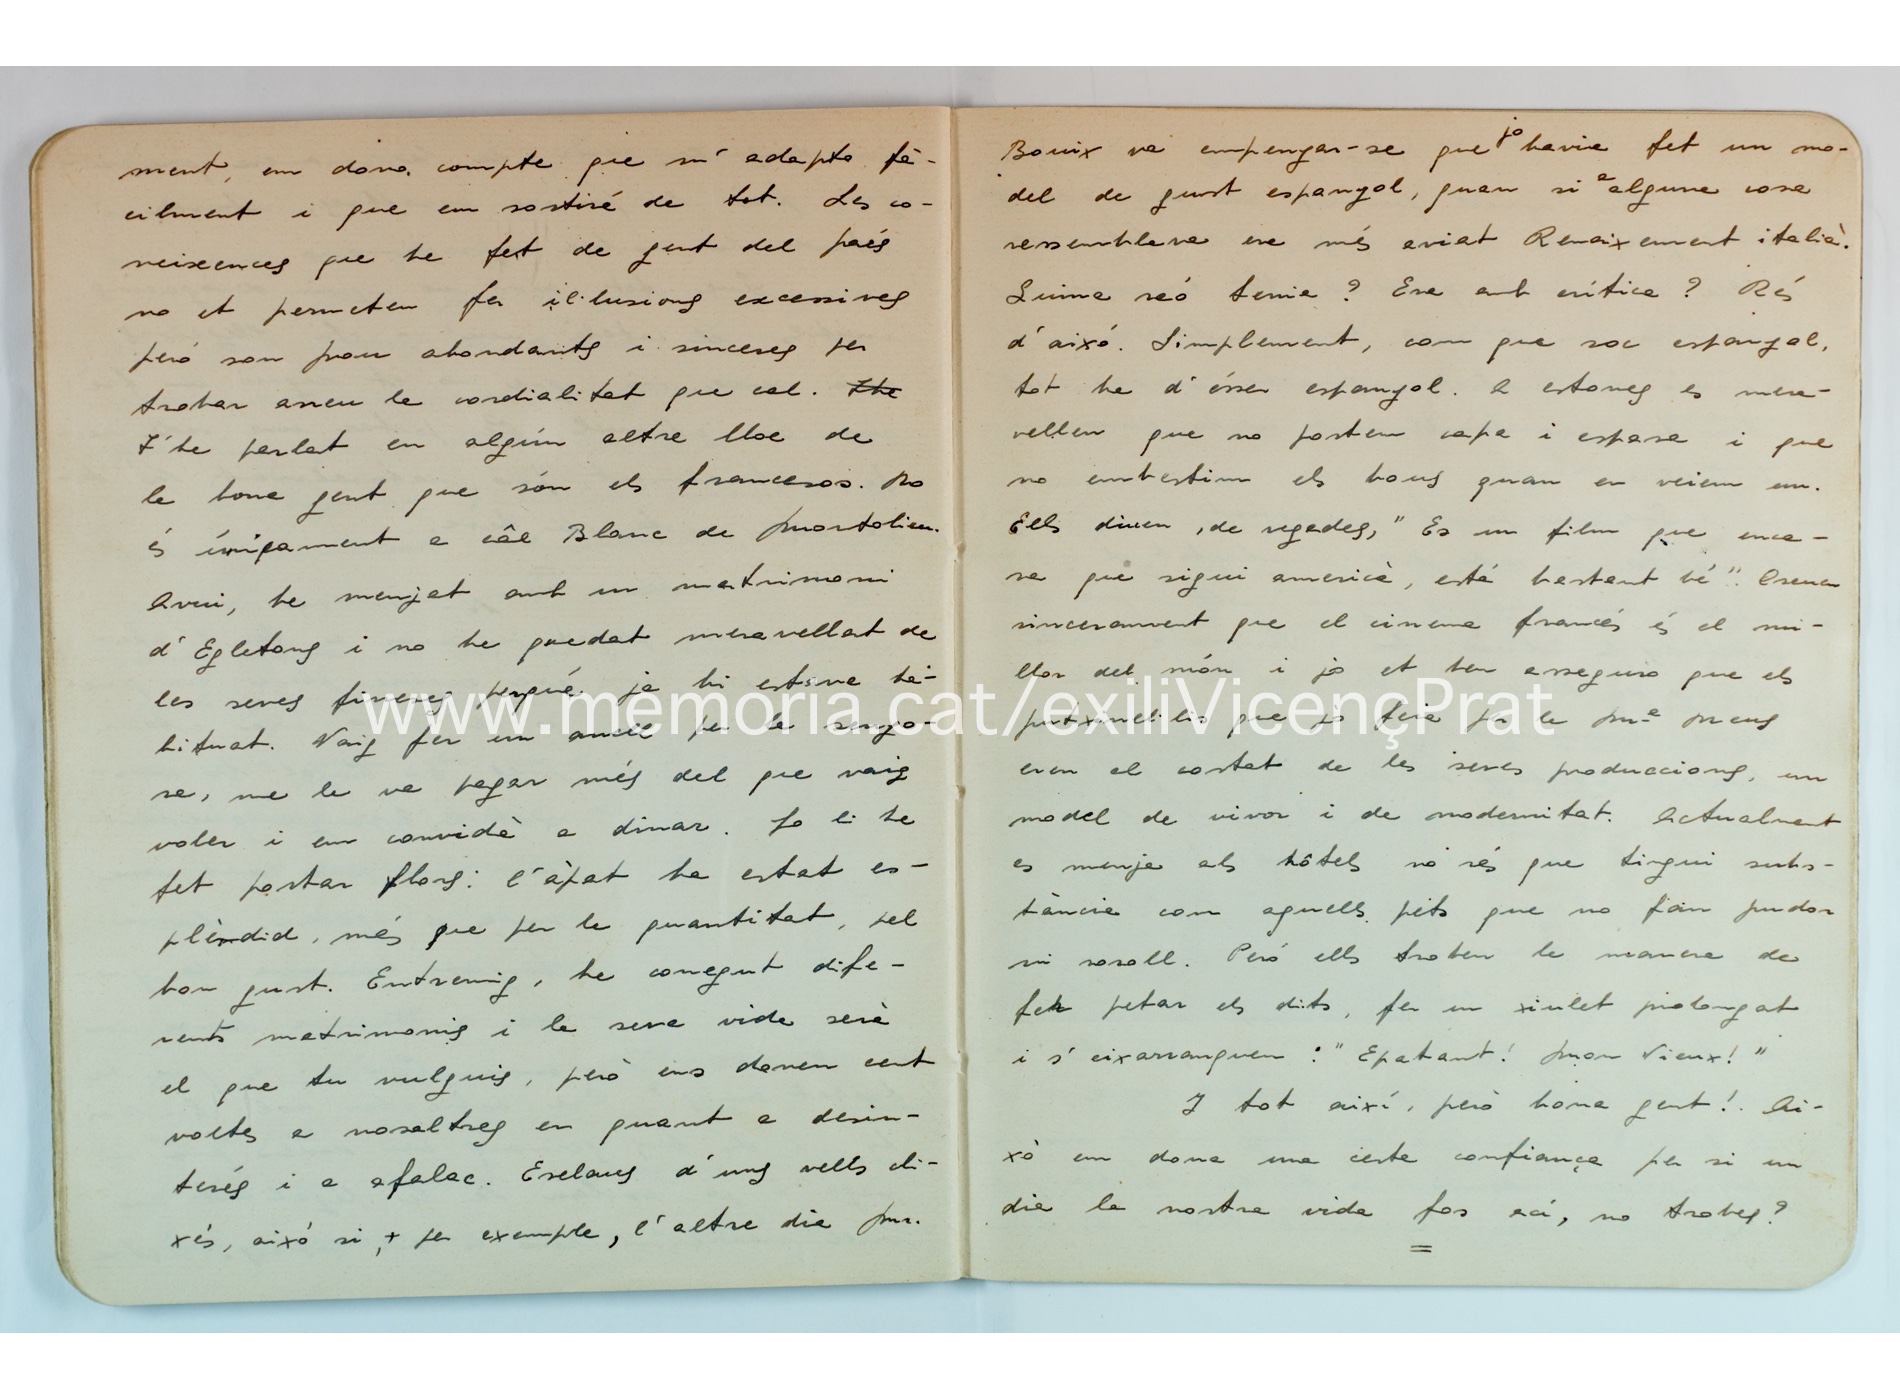 ment, em dona compte que m'adapto fà-
cilment i que em sortiré de tot. Les co-
neixences que he fet de gent del país
no et permeten fer il·lusions excessives
però son prou abondants i sinceres per
trobar arreu la cordialitat que cal.
T'he parlat en algún altre lloc de
la bona gent que són els francesos. No
és únicament a câl Blanc de
Avui, he menjat amb un matrimoni
d'Egletons i no he quedat meravellat de
les seves fineses perquè ja hi estava ha-
bituat. Vaig fer un anell per la senyo-
ra, me le va pagar més del que vaig
voler i em convidà a dinar. Jo li he
fet portar flors: l'àpat ha estat es-
plèndid, més que per la quantitat, pel
bon gust. Entremig, he conegut dife-
rents matrimonis i la seva vida serà
el que tu vulguis, però ens donen cent
voltes a nosaltres en quant a desin-
terés i a afalac. Esclaus d'uns vells cli-
xés, això si, + per exemple, l'altre dia Mr.
Bouix va empenyar-se que jo havia fet un mo-
del de gust espanyol, quan si a alguna cosa
ressemblava era més aviat Renaixement italià.
Quina raó tenia? Era amb crítica? Rés
d'això. Simplement, com que soc espanyol,
tot ha d'ésser espanyol. A estones es mera-
vellen que no portem capa i espasa i que
no embestim els bous quan en veiem un.
Ells diuen, de vegades, "Es un film que enca-
ra que sigui americà, está bastant bé". Creuen
sincerament que el cinema francés és el mi-
llor del món i jo et ben asseguro que els
putxinel·lis que jo feia per la Mª Creus
eren al costat de les seves produccions, un
model de vivor i de modernitat. Actualment
es menja als hôtels no rés que tingui subs-
tància com aquells pets que no fan pudor
ni soroll. Però ells troben la manera de
fer petar els dits, fer un xiulet prolongat
i s'eixarranquen: "Epatant! Mon Vieux!"
I tot així, però bona gent!. Ai-
xò em dona una certa confiança per si un
dia la nostra vida fos ací, no trobes?
=
www.memoria.cat/exiliVicençPrat